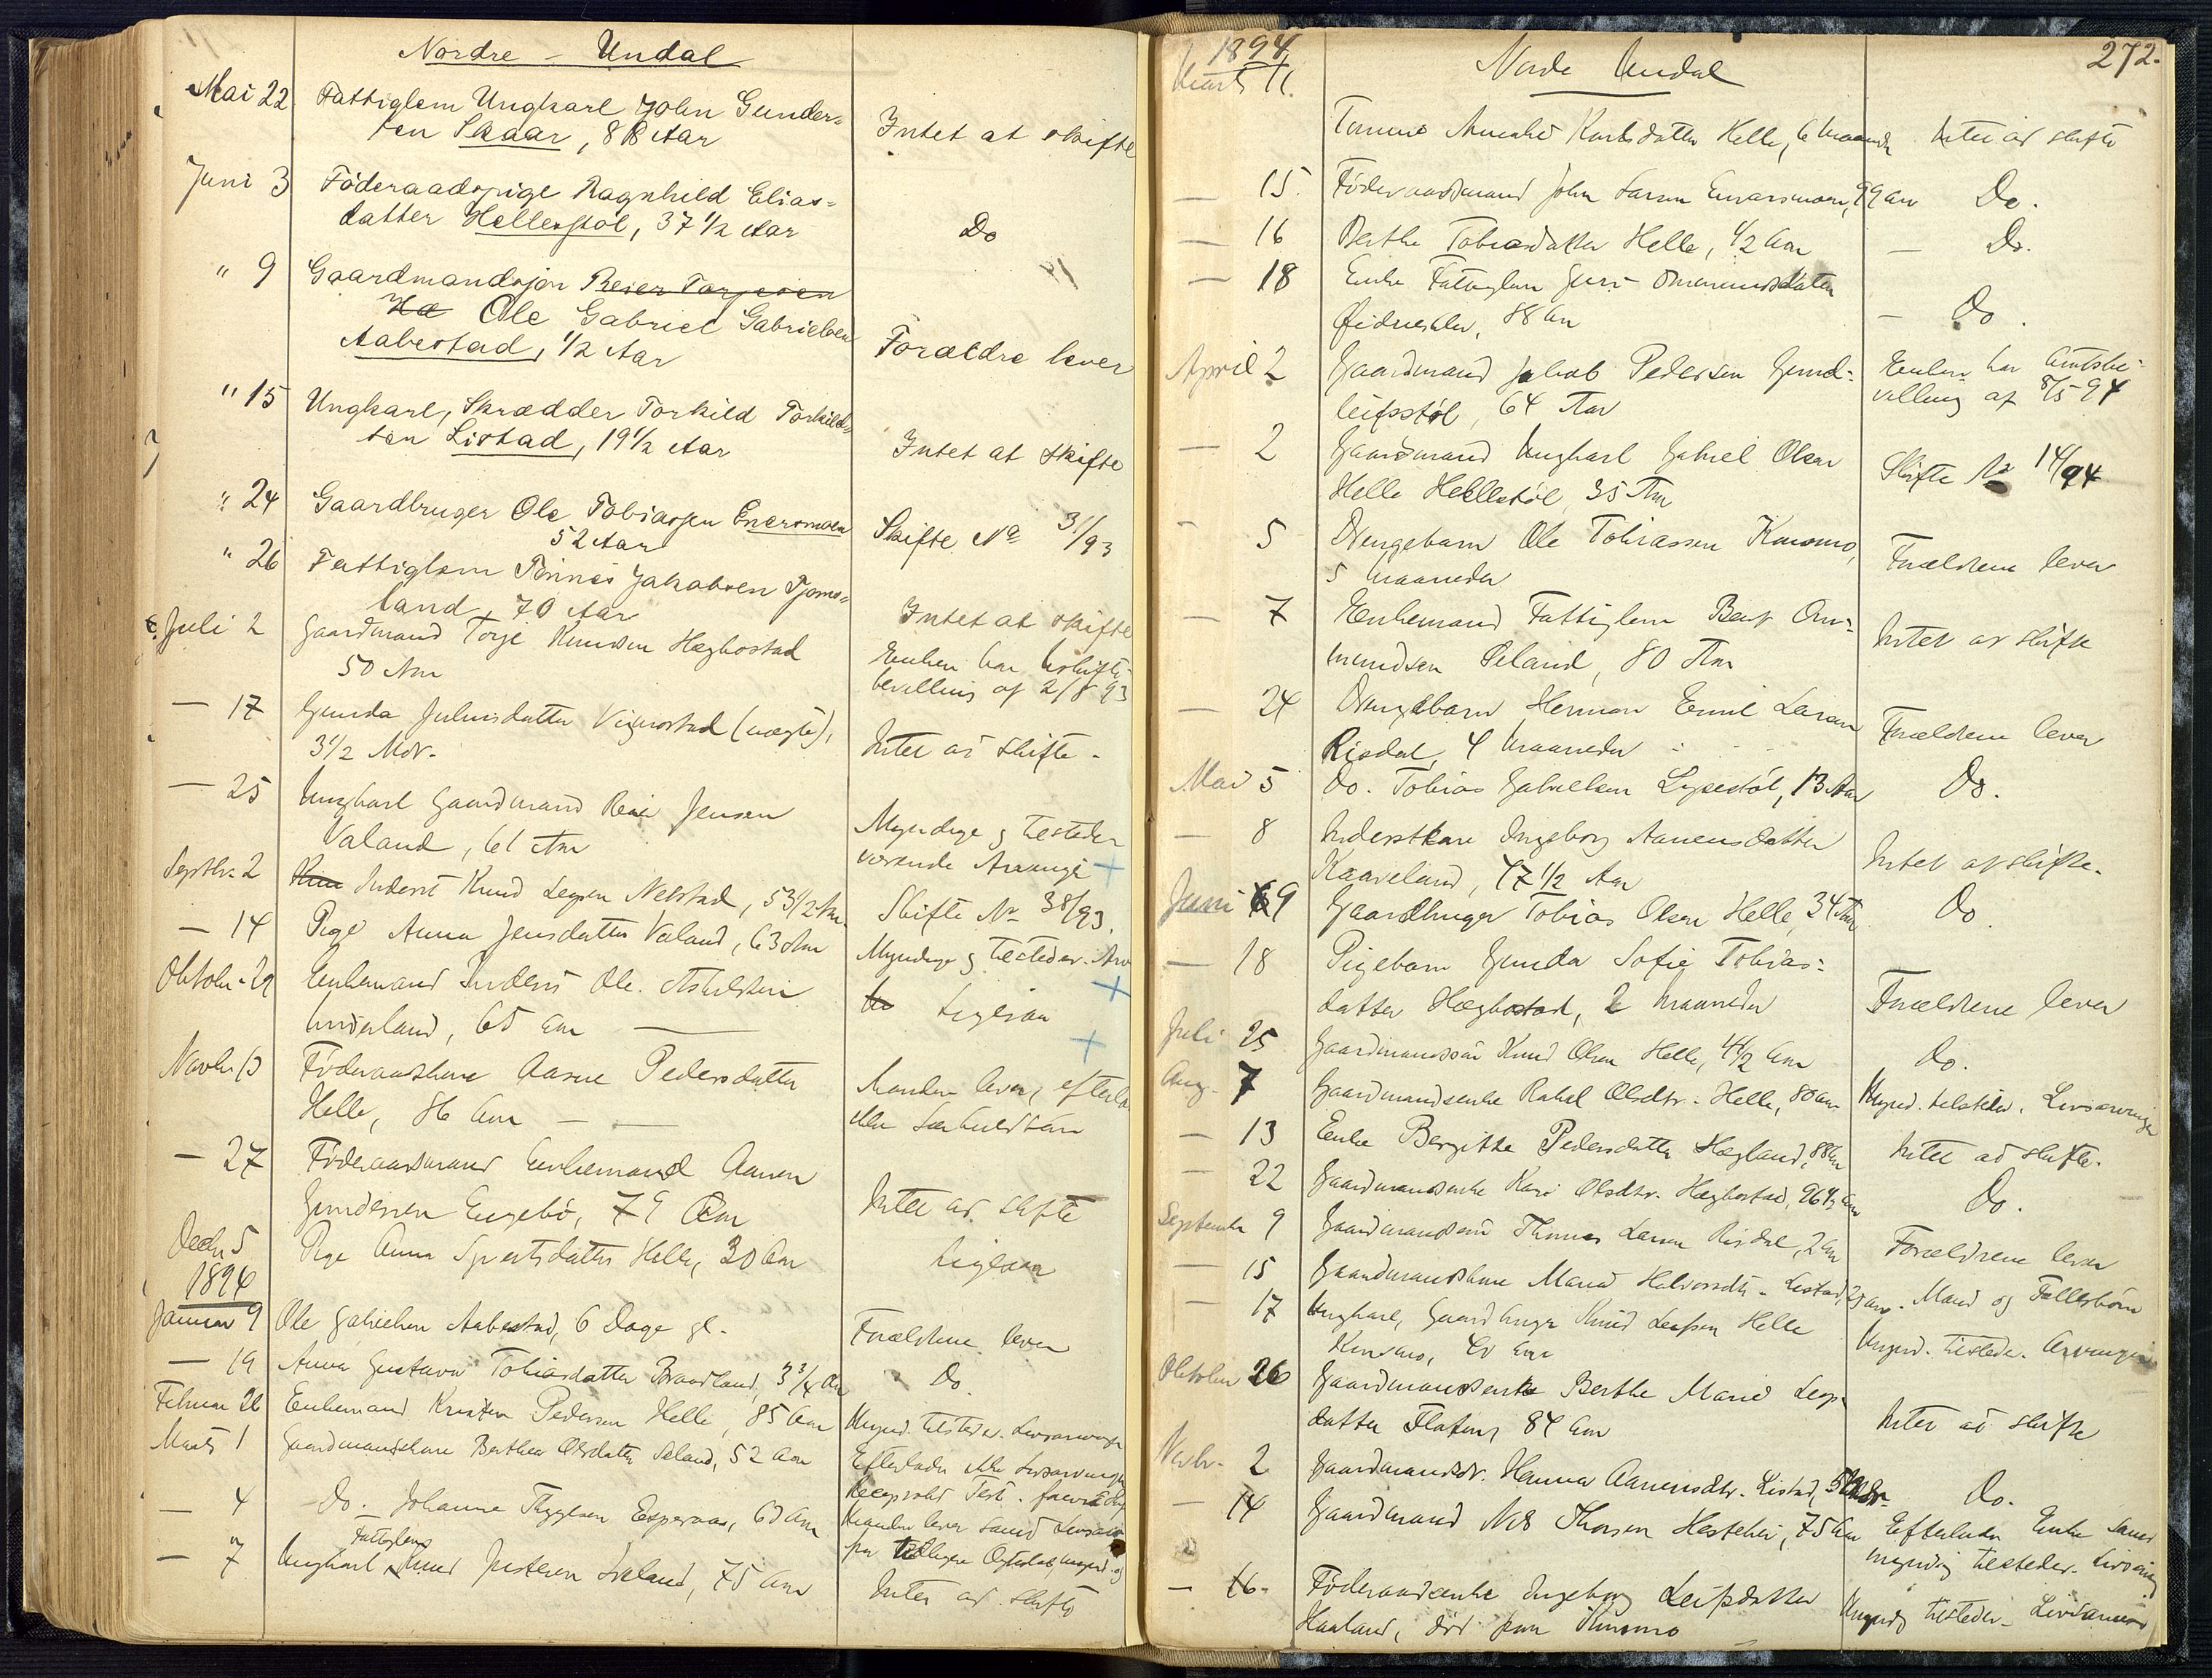 Nordre - Undal
Mai 22 Fattiglem Ungkarl John Gunder-
sen Skaar, 88 Aar Intet at skifte
Juni 3 Föderaadspige Ragnhild Elias-
datter Hellerstöl, 37 1/2 Aar Do
" 9 Gaardmandssön Reier Torjesen
Hæ Ole Gabriel Gabrielsen
Aabestad, 1/2 Aar Forældre lever
" 15 Ungkarl, Skrædder Torkild Torkild-
sen Listad, 19 1/2 Aar Intet at skifte
" 24 Gaardbruger Ole Tobiassen Eneresmoen
52 Aar Skifte No 31/93
" 26 Fattiglem Tönnes Jakobsen Tjoms-
land, 70 Aar Intet at skifte
Juli 2 Gaardmand Torje Knudsen Hægbostad
50 Aar Enken har
bevilling af 2/8 93
— 17 Gunda Juliusdatter Vigmostad (uægte),
3 1/2 Mdr. Intet at skifte -
— 25 Ungkarl Gaardmand Reier Jensen
Valand, 61 Aar Myndige g tilstede-
værende Arvinge +
Septbr. 2 Inderst Knud Legsen Nebstad, 53 1/2 Aar Skifte No 38/93.
— 14 Pige Anna Jensdatter Valand, 63 Aar Myndige g tilstedev. Arv
Oktobr. 29 Enkemand Inderst Ole
Underland, 65 Aar Ligesaa +
Novbr 13 Föderaadskone Aasne Pedersdatter
Helle, 86 Aar Manden lever, efterla
eller Særkuldbarn
— 27 Föderaadsmand Enkemand Aanen
Gundersen Eigebö, 79 Aar Intet at skifte
Decbr 5 Pige Anna Sjvertsdatter Helle, 30 Aar Ligesaa
1894
Januar 9 Ole Gabrielsen Aabestad, 6 Dage gl. Forældrene lever
— 19 Anna Gustava Tobiasdatter Braadland, 3 3/4 Aar Do
Februar 26 Enkemand Kristen Pedersen Helle, 85 Aar Mynd. tilstedev. Livsarvinge
Marts 1 Gaardmandskone Berthea Olsdatter Seland, 52 Aar Efterlader ikke Livsarvinger
Reciprokt Test.
— 4 Do. Johanne Esperaas, 60 Aar Manden lever samt
Fattiglem
— 7 Ungkarl Knud Josteson Ireland, 75 Aar Intet at skifte
1894 Nordre Undal 272.
Marts 11.
Tomine Amalie Knudsdatter Helle, 6 Maaneder Intet at skifte
— 15. Föderaadsmand John Larsen Enersmoen, 79 Aar Do.
— 16 Berthe Tobiasdatter Helle, 1/2 Aar — Do.
— 18 Enke Fattiglem Guri Omundsdatter
88 Aar — Do.
April 2 Gaardmand Jakob Pedersen Gund-
leifsstöl, 64 Aar Enken har Amtsbe-
villing af 8/5 94
— 2 Gaardmand Ungkarl Gabriel Olsen
Helle Hellestöl, 35 Aar Skifte No 14/94
— 5 Drengebarn Ole Tobiassen Kvasmo,
5 Maaneder Forældrene lever
— 7 Enkemand Fattiglem Bent Om-
mundsen Seland, 80 Aar Intet at skifte
— 24 Drengebarn Herman Emil Larsen
Risdal, 4 Maaneder Forældrene lever
Mai 5 Do. Tobias Gabrielsen Lyxestöl, 13 Aar Do.
— 8 Inderstkone Ingeborg Aanensdatter
Kaaveland, 47 1/2 Aar Intet at skifte.
Juni 9 Gaardbruger Tobias Olsen Helle, 34 Aar Do.
— 18 Pigebarn Gunda Sofie Tobias-
datter Hægbostad, 2 Maaneder Forældrene lever
Juli 25 Gaardmandssön Knud Olsen Helle, 4 1/2 Aar Do.
Aug. 7 Gaardmandsenke Rakel Olsdtr. Helle, 80 Aar Mynd. tilstedev. Livsarvinge
— 13 Enke Bergitte Pedersdatter Hægland, 88 Aar Intet at skifte.
— 22 Gaardmandsenke Kari Olsdtr. Hægbostad, 96 1/2 Aar Do.
September 9 Gaardmandssön Thomas Larsen Risdal, 2 Aar Forældrene lever
— 15 Gaardmandskone Maria Halvorsdtr. Listad, Mand og Fællesbörn
— 17 Ungkarl, Gaardbruger Knud Leifsen Helle
Kvasmo, Aar Mynd. tilstedev. Arvinger
Oktober 26 Gaardmandsenke Berthe Marie Legs-
datter Flaten, 84 Aar Intet at skifte
Novbr. 2 Gaardmandsdr. Hanna Aanensdtr. Listad, Do.
— 14 Gaardmand Nils Thorsen Hestehei, 75 Aar Efterlader Enke samt
myndig tilstedev. Livsarving
— 16. Föderaadsenke Ingeborg Leifsdatter
Haaland, död paa Kvasmo Myndig tilstedev. Livsarving